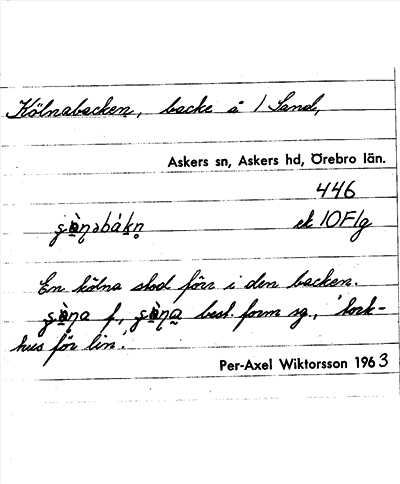 Kölnabacken, backe å 1 Sand,
Askers sn, Askers hd, Örebro län.
446
ek 10F1g
En kölna stod förr i den backen.
f., best. form sg., 'tork-
hus för lin.'
Per-Axel Wiktorsson 1963